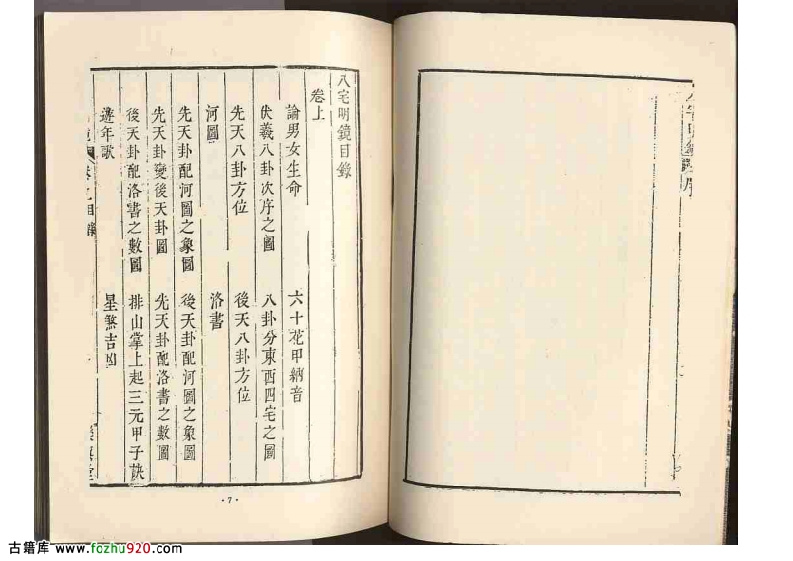 八宅明鏡目錄
卷上
論男女生命
六十花甲納音
伏羲八卦次序之圖
八卦分東西四宅之圖
先天八卦方位
後天八卦方位
河圖
洛書
先天卦配河圖之象圖
後天卦配河圖之象圖
先天卦變後天卦圖
先天卦配洛書之數圖
後天卦配洛書之數圖
排山掌上起三元甲子訣
遊年歌
星煞吉凶
卷之目錄
· 7 ·
古籍库 www.fozhu920.com